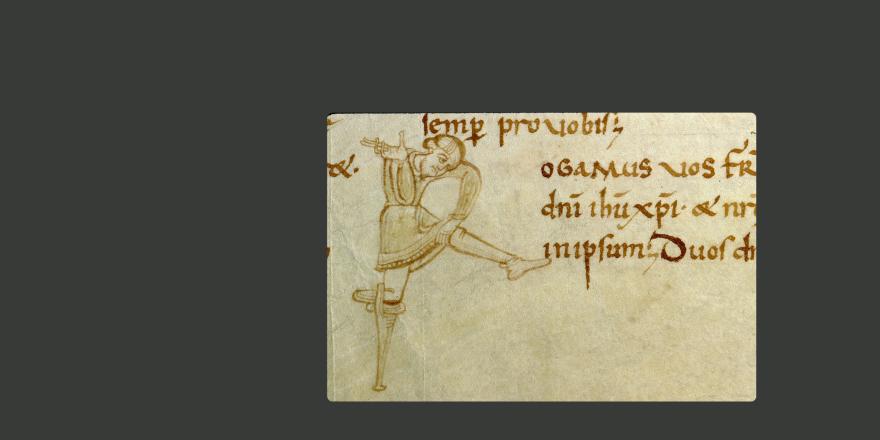 semꝑ pro vobis;
&.
ROGAMUS vos fr̄
dnī ihū xp̄i· & nr̄
in ipsum; Quos